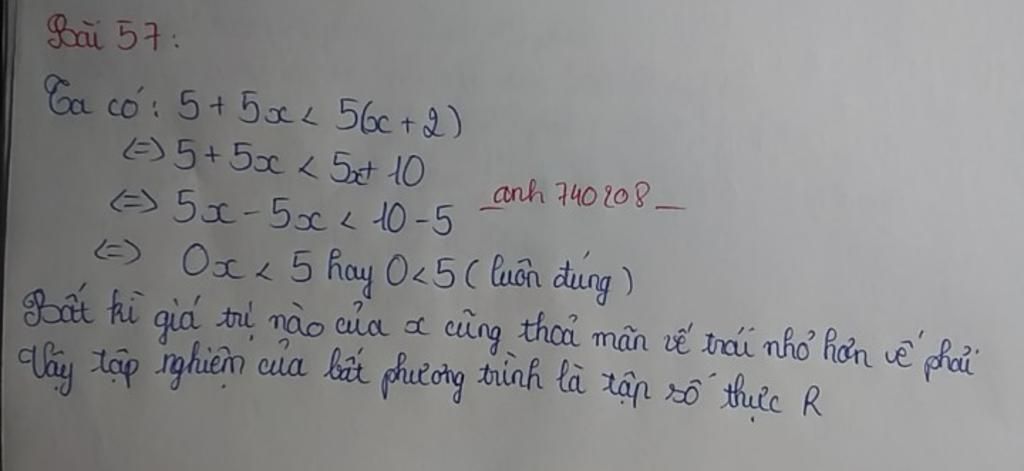 Bài 57:
Ta có: 5 + 5x < 5(x + 2)
<=> 5 + 5x < 5x + 10
<=> 5x - 5x < 10 - 5
_anh 740208_
<=> 0x < 5 hay 0 < 5 (luôn đúng)
Bất kì giá trị nào của x cũng thoả mãn vế trái nhỏ hơn vế phải
Vậy tập nghiệm của bất phương trình là tập số thực R